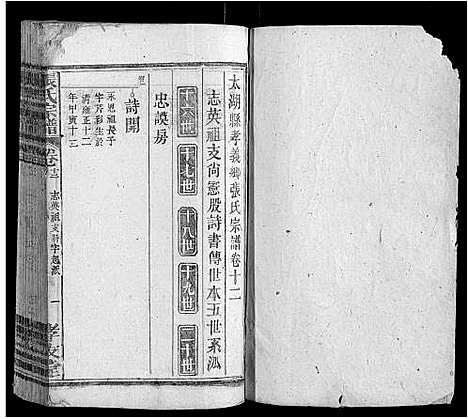 太湖縣孝義鄉張氏宗譜卷十二
志英祖支尚憲股詩書傳世本五世系派
十六世
十七世
十八世
十九世
二十世
忠謨房
詩開
永恩祖長子
字芳彩生於
清雍正十二
年甲寅十三
張氏宗譜
志英祖支詩字
一
孝友堂